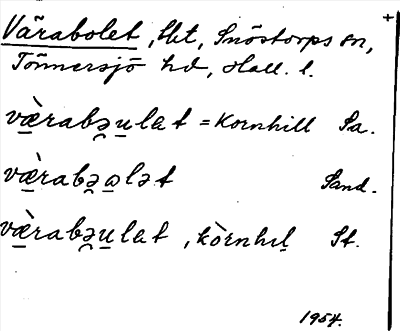 Värabolet, Ht, Snöstorps sn,
Tönnersjö hd, Hall. l.
væ̀rabə̯u̲læt = kornhill Sa.
væ̀rabə̯o̲lət Sand.
væ̀rabə̯u̲læt, kòrnhɩl̲ St.
1954.